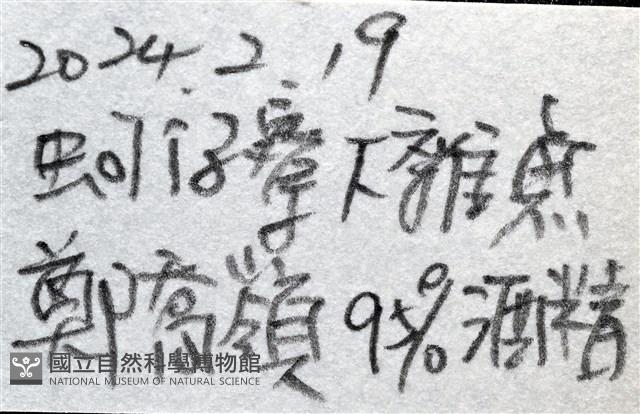 2024.2.19
蚵仔寮下雜魚
鄭高嶺 95% 酒精
國立自然科學博物館
NATIONAL MUSEUM OF NATURAL SCIENCE